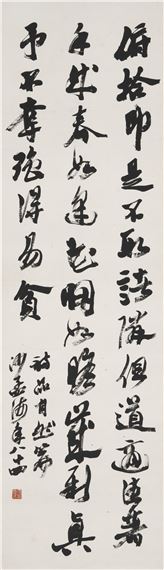 俯拾即是不取諸隣俱道適往著
手成春如逢花開如瞻歲新真
予不奪強得易貧
詩品自然篇
沙孟海年八十四